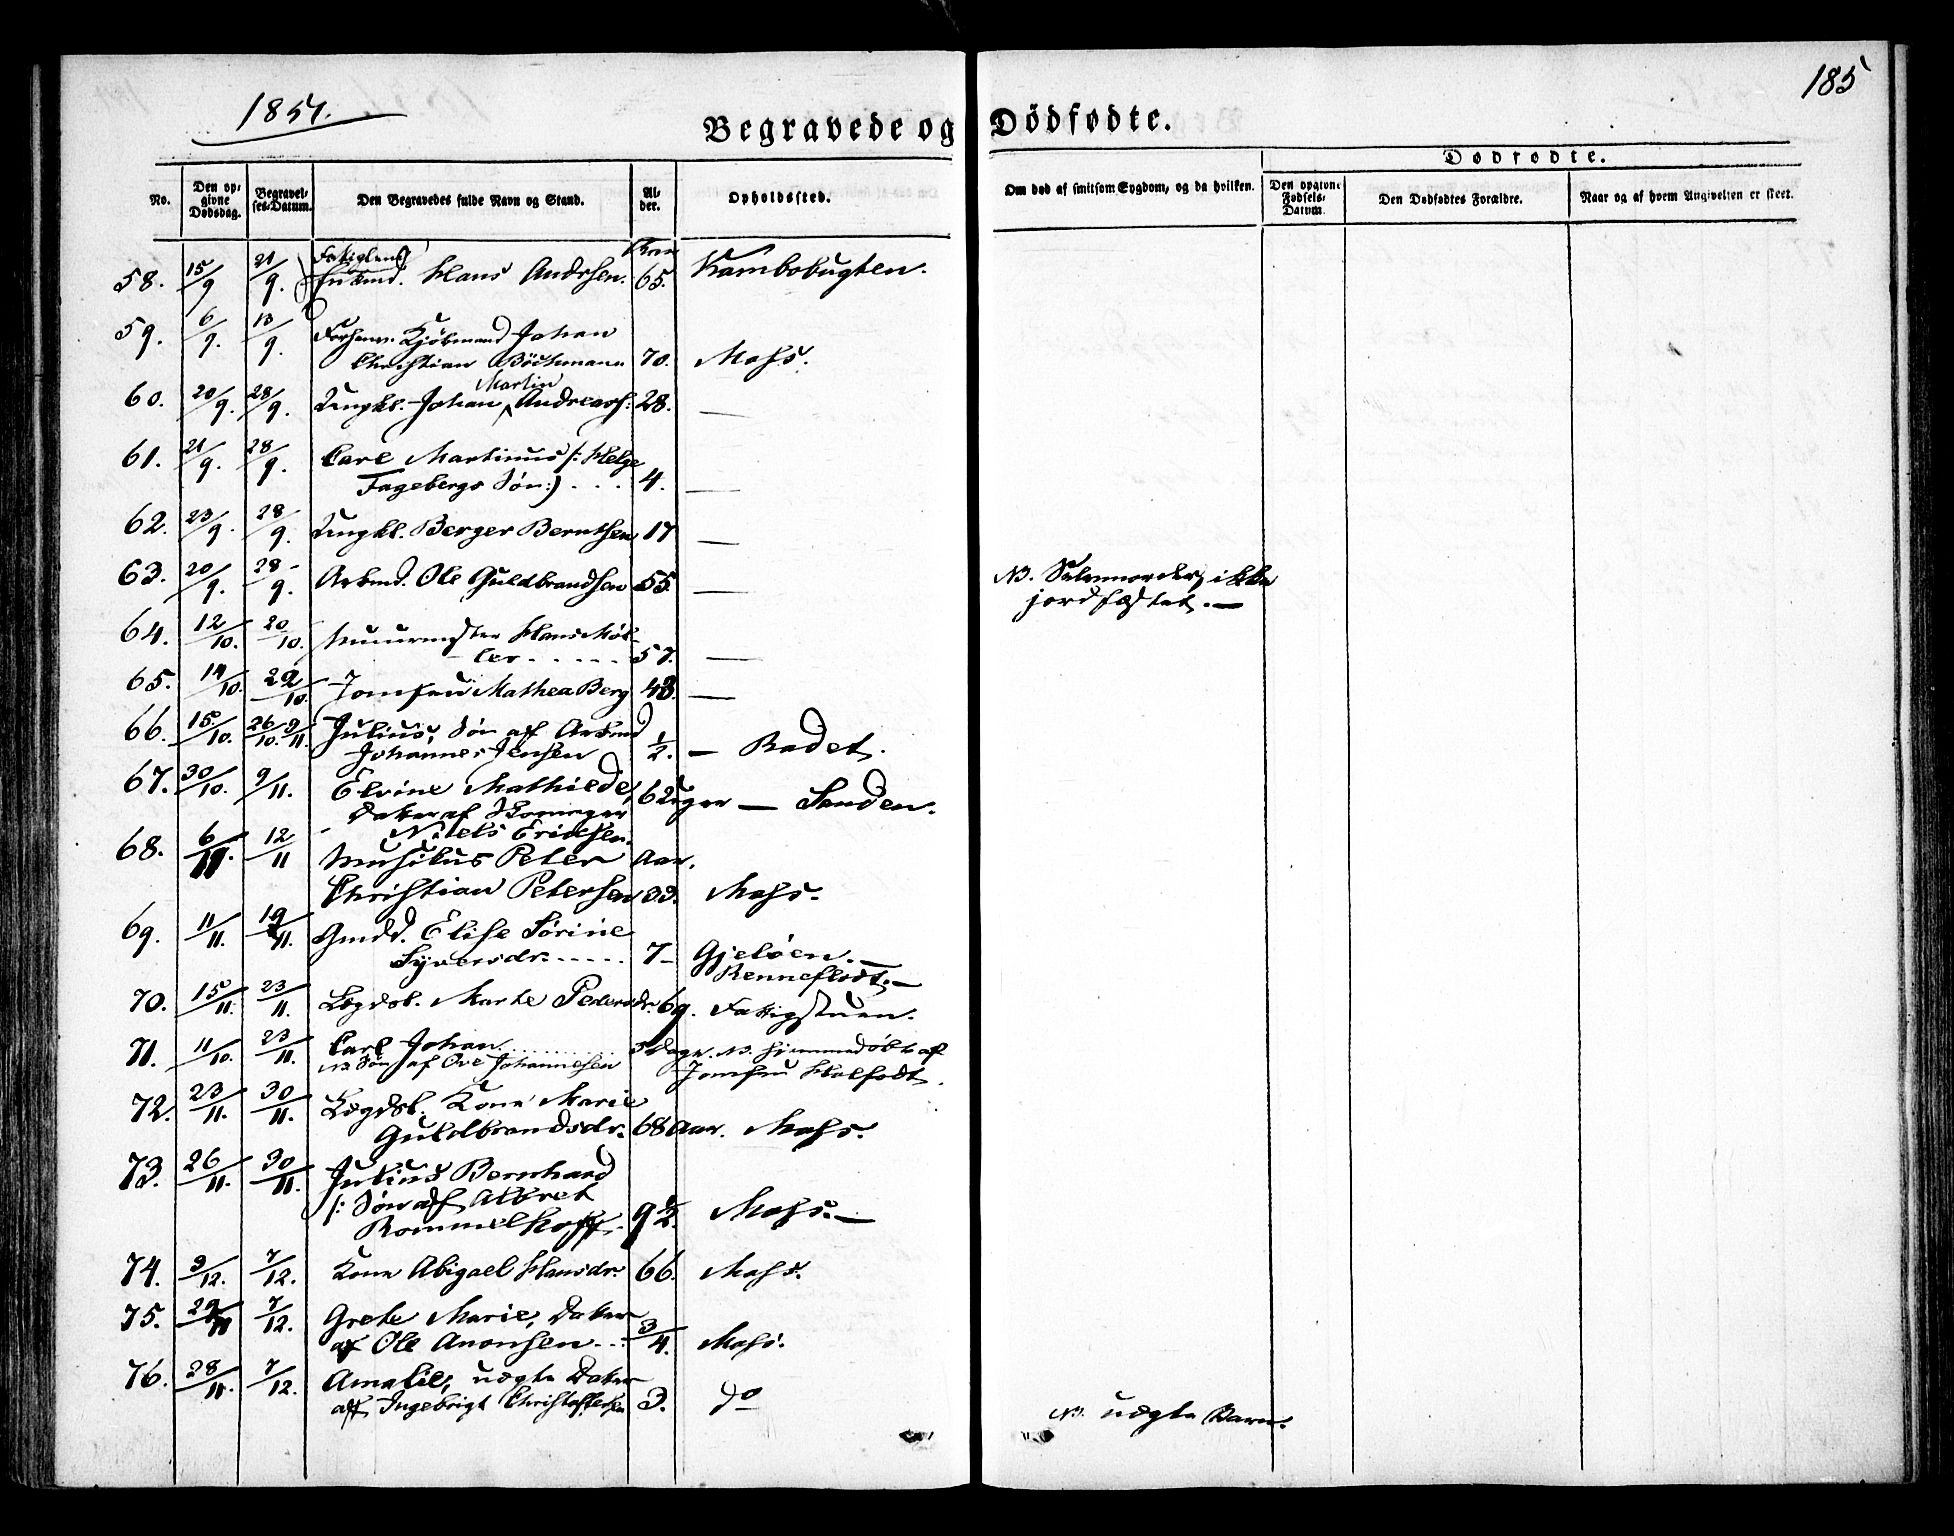 185
1851.
Begravede og Dødfødte.
Dødfødte.
No.
Den op-
givne
Dødsdag.
Begravel-
ses-Datum.
Den Begravedes fulde Navn og Stand.
Al-
der.
Opholdssted.
Om død af smitsom Sygdom, og da hvilken.
Den opgivne
Fødsels-
Datum.
Den Dødfødtes Forældre.
Naar og af hvem Angivelsen er skeet.
58. 15/9 21/9. Hans Andrsen. 65. Kambobugten.
59. 6/9. 13/9. Kjöbmand Johan
Christian 70. Moss.
Martin
60. 20/9. 28/9. Ungkl. Johan Andreass: 28. —
61. 21/9. 28/9. Carl Martinus /: Helge
Fagebergs Søn:) . . . 4. —
62. 23/9. 28/9. Ungkl. Berger Berntsen 17 —
63. 20/9. 28/9. Arbmd. Ole Guldbrandsen 55. — NB. Selvmorder, ikke
jordfæstet. —
64. 12/10. 20/10. Muurmester Hans Möl-
ler . . . . . 57. —
65. 14/10. 22/10. Jomfru Mathea Berg 43. —
66. 15/10. 26/10. 9/11. Julius, Søn af Arbmd
Johannes Jensen 1/2. — Radet.
67. 30/10. 9/11. Elvine Mathilde, 6 Uger — Sanden.
Datter af Skomager
Niels Ericksen.
68. 6/11. 12/11 Musikus Peter Aar.
Christian Petersen 33. Moss.
69. 11/11. 19/11. Gmdd. Elise Sørine
Syversdr. . . . . . 7 — Gjelöen. —
Renneflodt. —
70. 15/11. 23/11. Lægdsl. Marte Pedersdr. 69. Fattigstuen.
71. 11/10. 23/11. Carl Johan . . . . . . Dage. NB. Hjemmedöbt af
NB Søn af Ove Johannesen Jomfru Holfodt.
72. 23/11. 30/11. Lægdsl. Kone Marie
Guldbrandsdr. 68 Aar. Moss.
73. 26/11. 30/11. Julius Bernhard
/: Søn af Albret
Rommelhoff. 9 1/2. Moss. —
74. 3/12. 7/12. Kone Abigael Hansdr. 66. Moss.
75. 29/11 7/12. Grete Marie, Datter
af Ole Anonsen . . 3/4. Moss.
76. 28/11. 7/12. Amalie, uægte Datter
af Ingebrigt Christoffersen 3. do NB. uægte Barn.